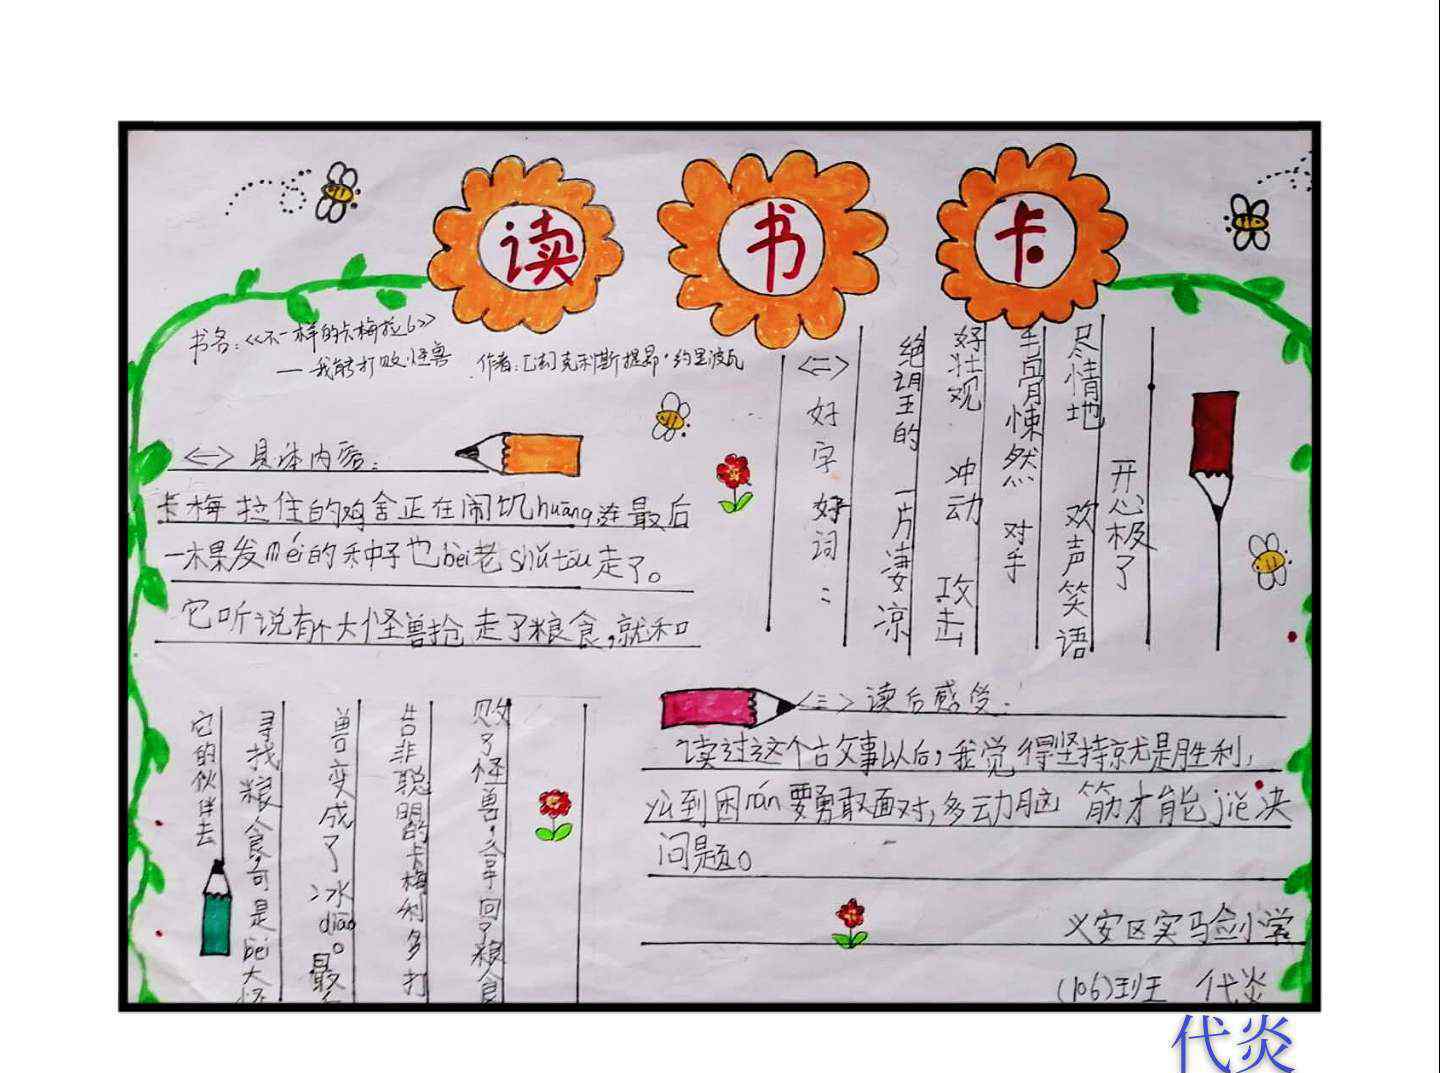 读书卡
书名:《不一样的卡梅拉6》
—我能打败怪兽 作者:[法]克利斯提昂·约里波瓦
<一>具体内容:
卡梅拉住的鸡舍正在闹饥huāng,连最后
一棵发méi的种子也bèi老shǔ tōu走了。
它听说有个大怪兽抢走了粮食,就和
它的伙伴去
寻找粮食,可是bèi大怪
兽变成了冰diāo。最
告非聪明的卡梅利多打
败了怪兽,拿回了粮食
<二>好字好词:
绝望的 一片凄凉
好壮观 冲动 攻击
毛骨悚然 对手
尽情地 欢声笑语
开心极了
<三>读后感受:
读过这个古文事以后,我觉得坚持就是胜利,
迂到困nán要勇敢面对,多动脑筋才能jiě决
问题。
义安区实马金小学
(106)班 代炎
代炎